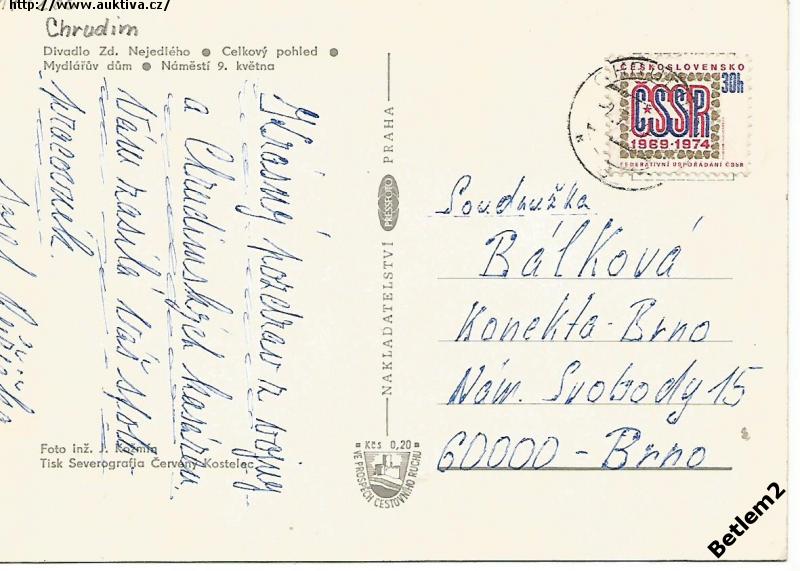 http://www.auktiva.cz/
Chrudim
Divadlo Zd. Nejedlého ● Celkový pohled ●
Mydlářův dům ● Náměstí 9. května
Krásný pozdrav z vojny
a Chrudimských kasáren
Vám zasílá Váš spolu-
pracovník.
Josef
Foto inž. J. Rozmin
Tisk Severografia Červený Kostelec
NAKLADATELSTVÍ PRESSFOTO PRAHA
Kčs 0,20
VE PROSPĚCH CESTOVNÍHO RUCHU
ČESKOSLOVENSKO
30h
ČSSR
1969-1974
FEDERATIVNÍ USPOŘÁDÁNÍ ČSSR
Soudružka
Bálková
Konekta-Brno
Nám. Svobody 15
60000-Brno
Betlem2